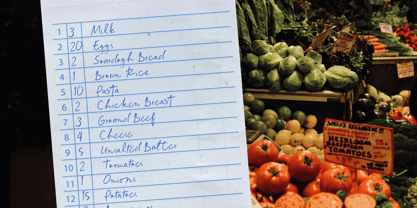 1 3 Milk
2 20 Eggs
3 2 Sourdough Bread
4 1 Brown Rice
5 10 Pasta
6 2 Chicken Breast
7 3 Ground Beef
8 4 Cheese
9 5 Unsalted Butter
10 2 Tomatoes
11 1 Onions
12 15 Potatoes
HEIRLOOM
TOMATOES